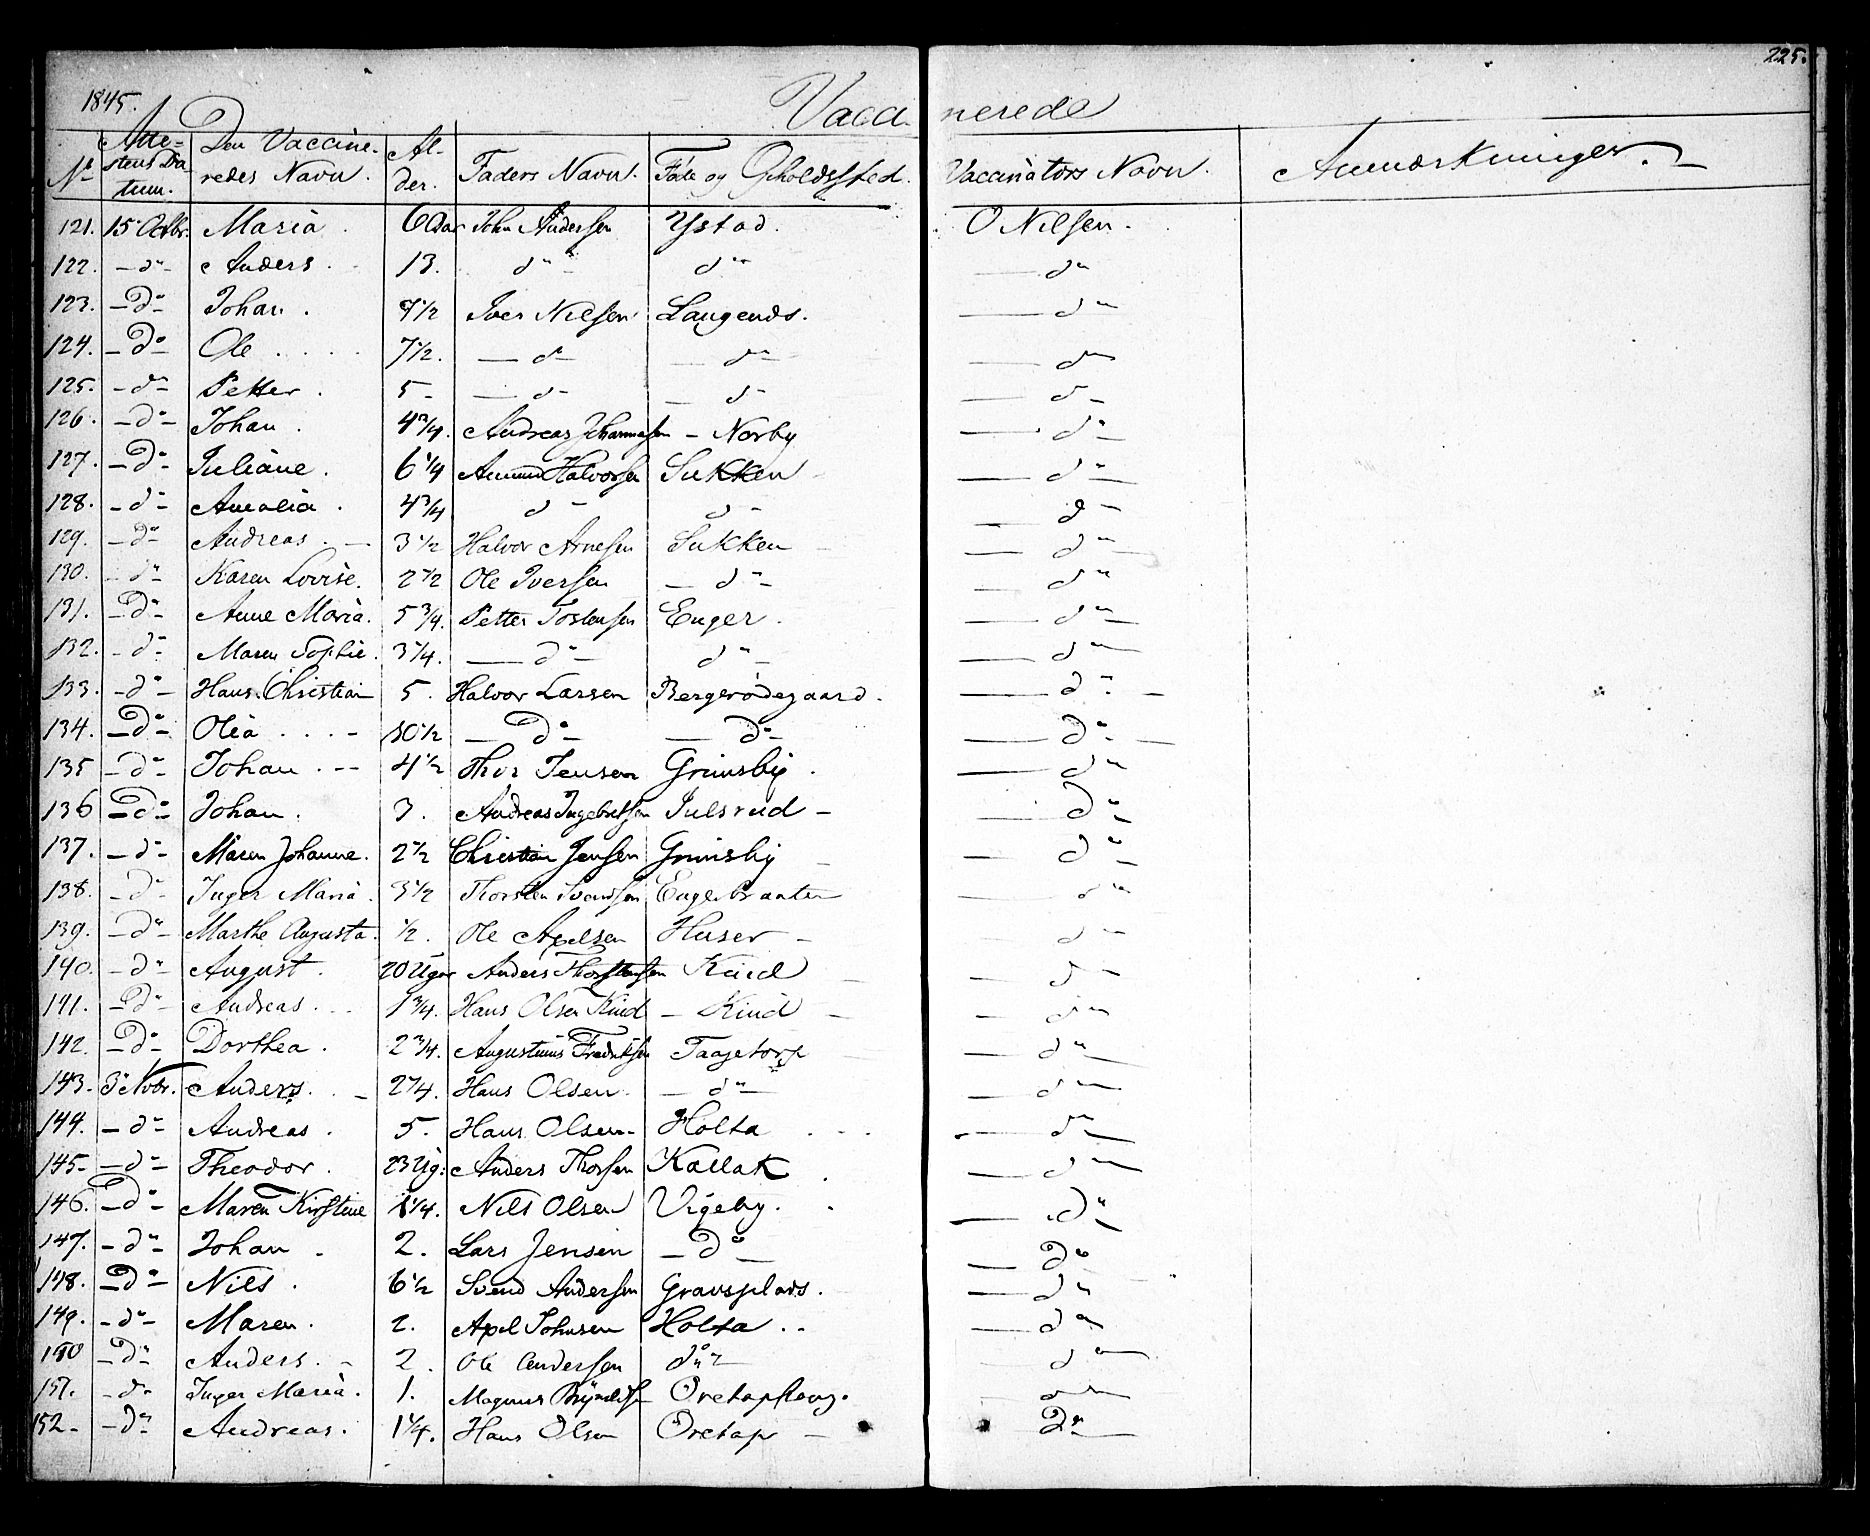 225.
1845. Vaccinerede
Nr Attestens Datum. Den Vaccineredes Navn. Alder. Faders Navn. Føde og Opholdssted. Vaccinators Navn. Anmærkninger.
121. 15 Octbr. Maria . 6 Aar John Andersen Ystad. O Nilsen.
122. – do – Anders . 13. do do — do
123. – Do – Johan . 9 1/2 Iver Nilsen Laugends. — do –
124. – Do – Ole . . . . 7 1/2. — do – — do — do
125. – do – Petter . 5 – — do – — do – — do –
126. – do – Johan . 4 3/4. Andreas Johannesen – Norby — do –
127. – Do – Juliane . 6 1/4 Amund Halvorsen Sukken — do –
128. – do – Amalia . 4 3/4 do – do – — do –
129. – do – Andreas . – 3 1/2 Halvor Arnesen Sukken — do –
130. – do – Karen Lovise. 2 1/2 Ole Iversen — do – — do
131. – Do – Anne Maria. 5 3/4. Petter Tostensen Enger . — do –
132. – do – Maren Sophie. 3 1/4. — do – do – — do –
133. – do – Hans Christian 5. Halvor Larsen Bergerødegaard. — do –
134. – Do – Olea . . . – 10 1/2 — Do – — do – — do –
135 – do – Johan . – – 4 1/2 Thor Jensen Grimsby . — do –
136 – Do – Johan . 3. Andreas Ingebretsen Julsrud – — do –
137. – do – Maren Johanne. 2 1/2 Christian Jensen Grimsby — do –
138. – do – Inger Maria . 3 1/2 Thorsten Svendsen Engebraaten — do
139. – do – Marthe Augusta. 1/2. Ole Axelsen Huser – — do –
140. – do – August . 20 Uger Anders Thorstensen Kind — do –
141. – do – Andreas . . . 1 3/4. Hans Olsen Kind – Kind – — do
142. – Do – Dorthea . 2 3/4. Augustinus Fredriksen Taagetorp — do –
143. 3 Novbr. Anders . – 2 1/4. Hans Olsen. — do – — do –
144. – do – Andreas . 5. Hans Olsen – Holta . . . — do –
145 – – do – Theodor . 23 Ug: Anders Thorsen Kallak . — do –
146. – Do – Maren Kirstine 1 1/4. Nils Olsen Vigeby. . — do –
147. – do – Johan . 2. Lars Jensen — Do – — Do
148. – Do – Nils . 6 1/2 Svend Andersen Gravsplads . — do
149. – do – Maren . 2. Axel Johnsen Holta . . — do
150 – do – Anders . – 2 . Ole Andersen do — do –
151. – do – Inger Maria . 1. Magnus — do –
152 – – do – Andreas . 1 1/4. Hans Olsen Oretap – Do –